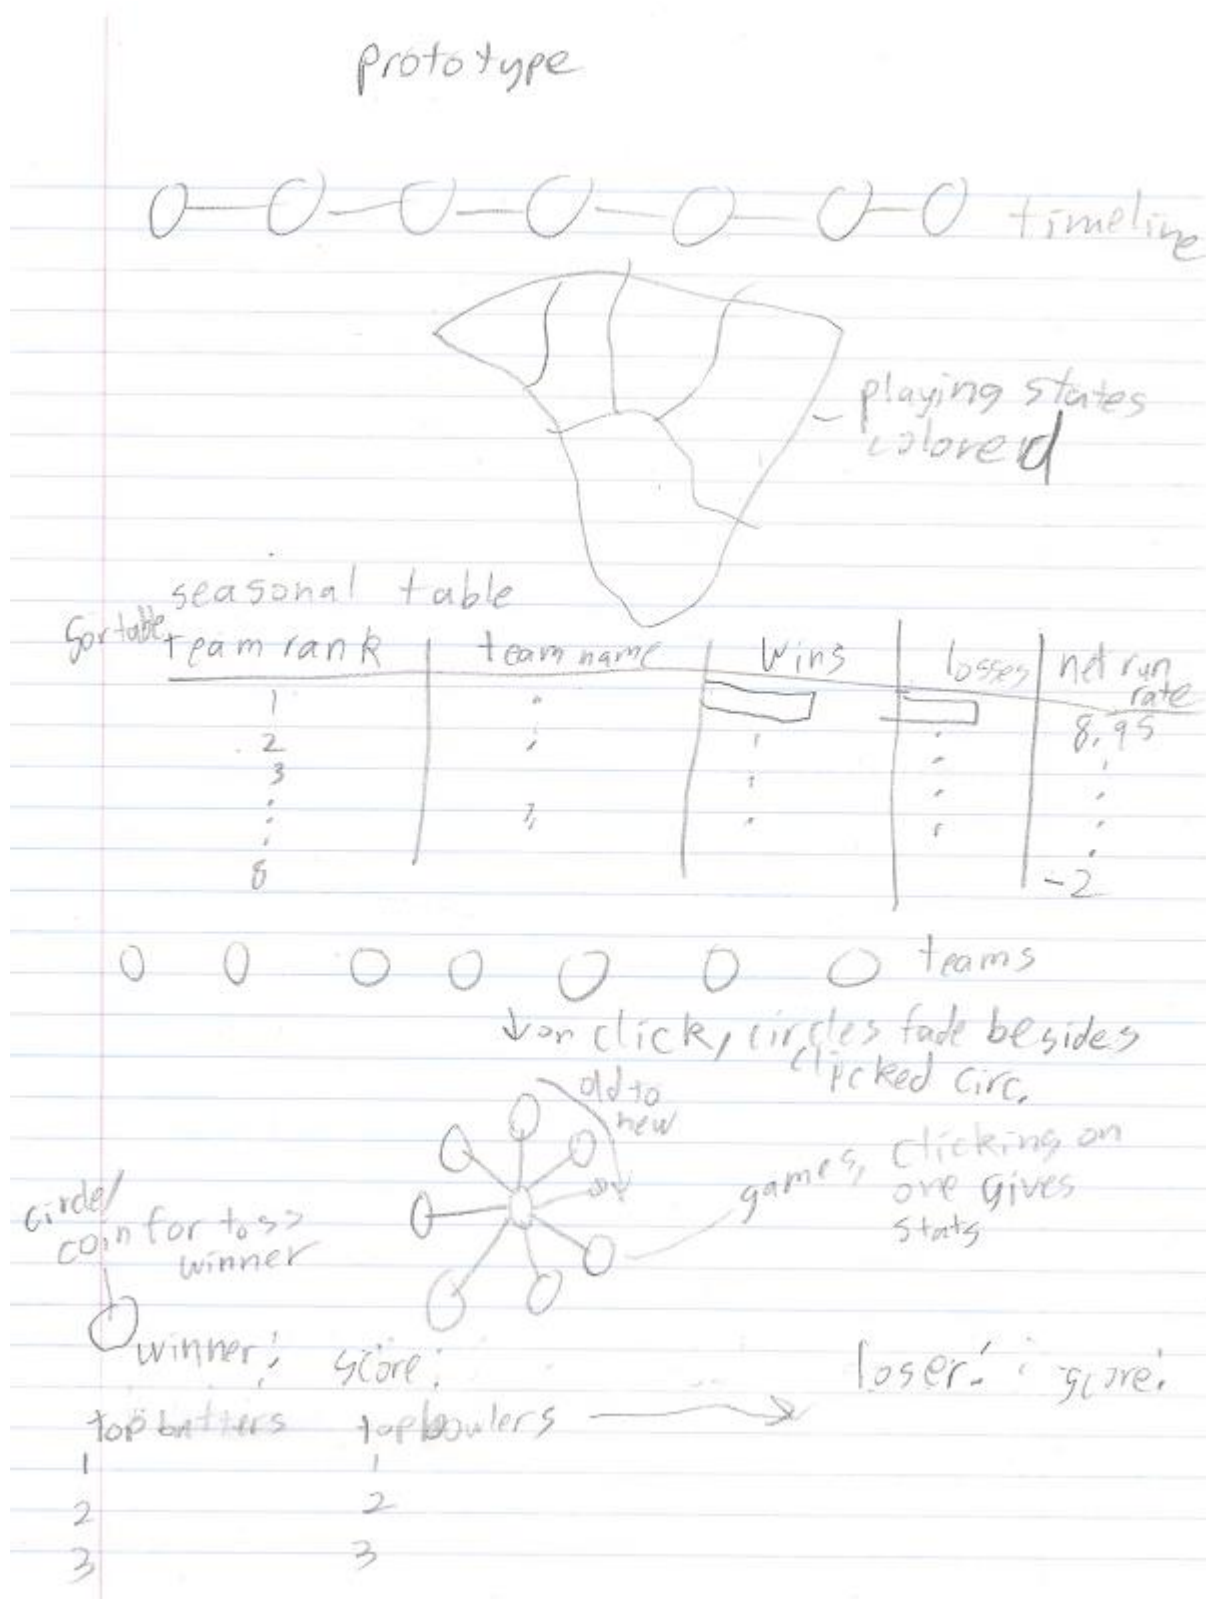 prototype
timeline
playing states
colored
seasonal table
sortable
team rank team name wins losses net run
rate
1 8.95
2
3
8 -2
teams
↓on click, circles fade besides
clicked circ.
old to
new
games, clicking on
one gives
stats
circle/
coin for toss
winner
winner: score: loser: score:
top batters top bowlers
1 1
2 2
3 3